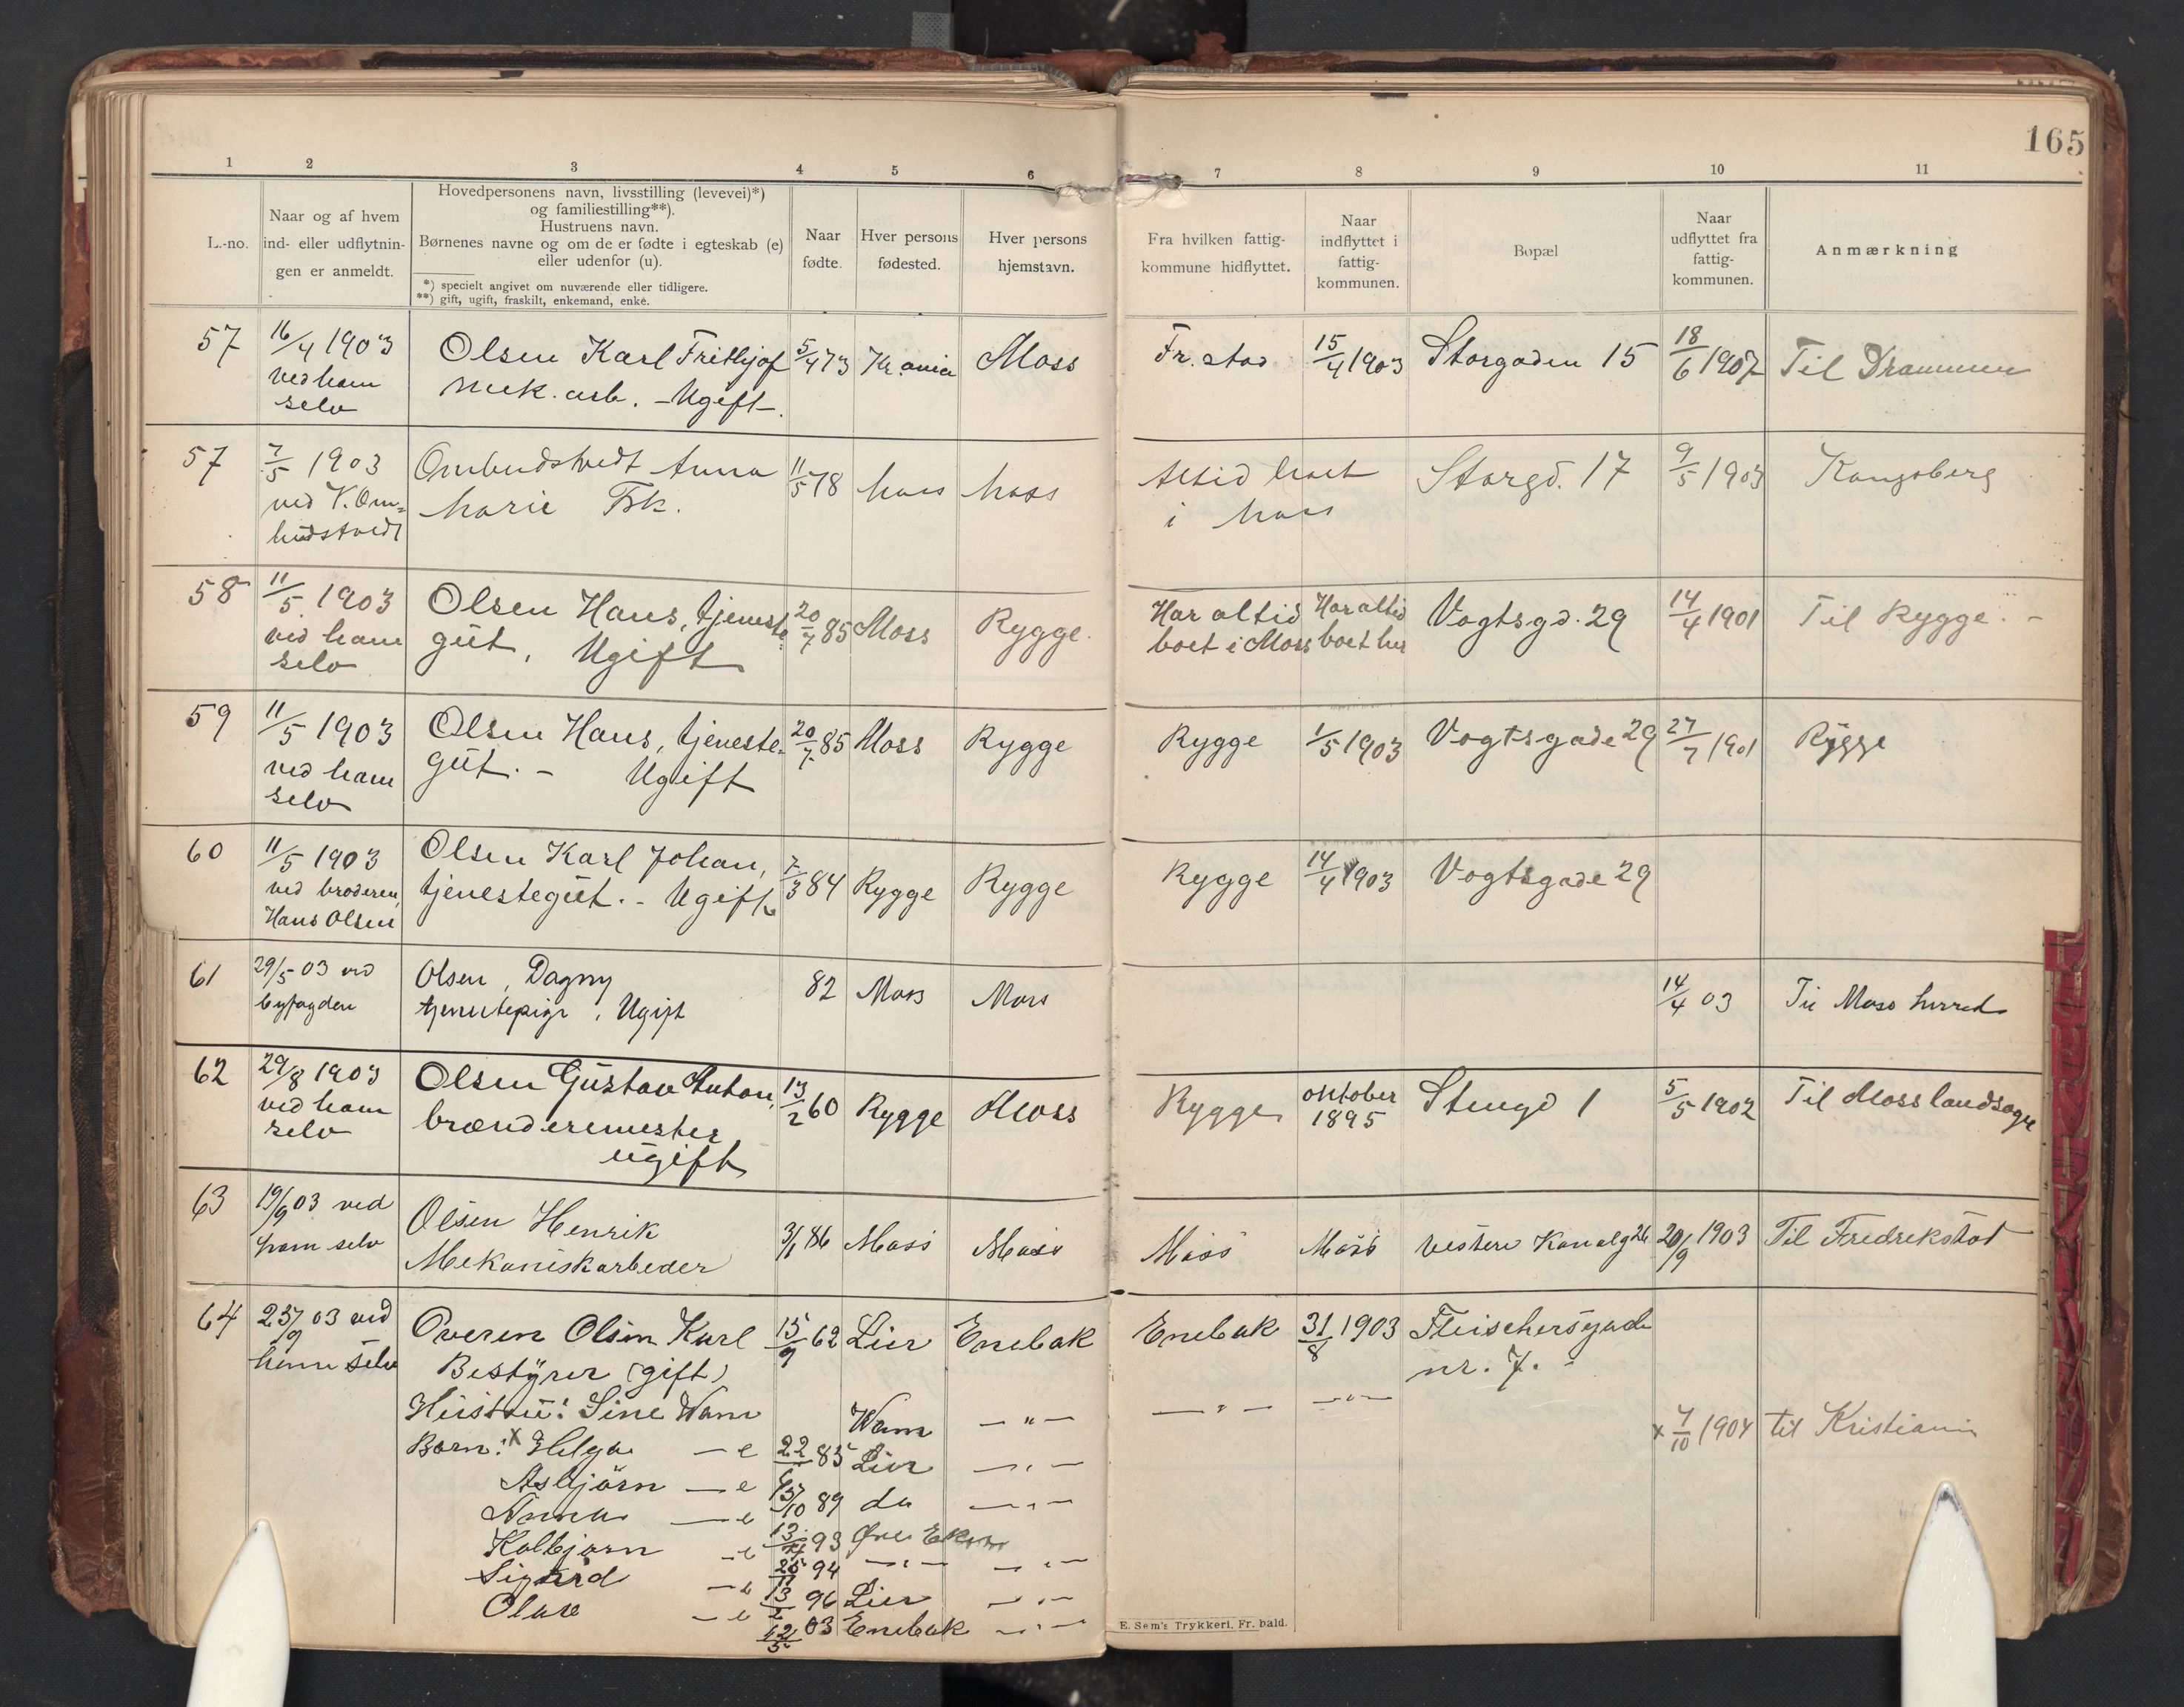 165
1 2 3 4 5 6 7 8 9 10 11
L.-no.
Naar og af hvem
ind- eller udflytnin-
gen er anmeldt.
Hovedpersonens navn, livsstilling (levevei)*)
og familiestilling**).
Hustruens navn.
Børnenes navne og om de er fødte i egteskab (e)
eller udenfor (u).
*) specielt angivet om nuværende eller tidligere.
**) gift, ugift, fraskilt, enkemand, enke.
Naar
fødte.
Hver persons
fødested.
Hver persons
hjemstavn.
Fra hvilken fattig-
kommune hidflyttet.
Naar
indflyttet i
fattig-
kommunen.
Bopæl
Naar
udflyttet fra
fattig-
kommunen.
Anmærkning
57 16/4 1903 Olsen Karl Frithjof 5/4 73 Kr.ania Moss Fr.stad 15/4 1903 Storgaden 15 18/6 1907 Til Drammen
ved ham mek. arb. - Ugift -.
selv
57 7/5 1903 Ombudstvedt Anna 11/5 78 Moss Moss Altid boet Storgd. 17 9/5 1903 Kongsberg
ved K. Om= Marie Frk. i Moss
budstvedt
58 11/5 1903 Olsen Hans, tjeneste 20/7 85 Moss Rygge. Har altid Har altid Vogtsgd. 29 14/4 1901 Til Rygge. -
ved ham gut, Ugift boet i Moss boet her
selv
59 11/5 1903 Olsen Hans, tjeneste- 20/7 85 Moss Rygge Rygge 1/5 1903 Vogtsgade 29 27/7 1901 Rygge
ved ham gut. - Ugift
selv
60 11/5 1903 Olsen Karl Johan, 7/3 84 Rygge Rygge Rygge 14/4 1903 Vogtsgade 29
ved broderen, tjenestegut. - Ugift
Hans Olsen
61 29/5 03 ved Olsen, Dagny 82 Moss Moss 14/4 03 Til Moss herred
byfogden tjenestepige, Ugift
62 29/8 1903 Olsen Gustav Anton, 13/2 60 Rygge Moss Rygge oktober Stengd 1 5/5 1902 Til Moss landsogn
ved ham brænderemester 1895
selv ugift
63 19/9 03 ved Olsen Henrik 3/1 86 Moss Moss Moss Moss Vestere Kanalg 26 20/9 1903 Til Fredrekstad
ham selv Mekaniskarbeder
64 23/9 03 ved Overen Olsen Karl 15/9 62 Lier Enebak Enebak 31/8 1903 Fleischersgade
ham selv Bestyrer (gift) nr. 7. -
Hustru: Sine Wam Wam - " - - " - - " -
Børn: x Helga - e 22/6 85 Lier - " - x 7/10 1904 til Kristiania
Asbjørn - e 15/10 89 do - " -
Anna - e 13/4 93 Øvre Eker
Kolbjørn - e 25/11 94 - " - - " -
Sigurd - e 13/2 96 Lier - " -
Oluse - e 12/5 03 Enebak - " -
E. Sem's Trykkeri, Fr. hald.